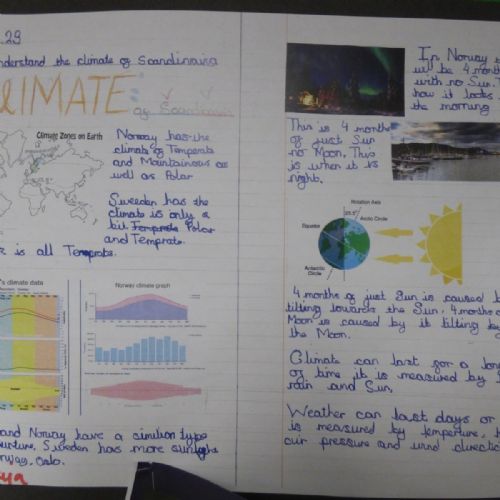 .29
nderstand the climate of Scandinavia
CLIMATE:
of Scandinavia
Climate Zones on Earth
Norway has the
climate of Temperate
and Mountainous as
well as Polar
Sweden has the
climate is only a
bit Polar
and Temprate.
is all Temprate.
's climate data
Norway climate graph
and Norway have a similiar type
Sweden has more
Oslo.
In Norway
will be 4 month
with no Sun.
how it looks
the morning
This is 4 months
of just Sun
no Moon. This
is when it is
night.
Rotation Axis
23.5°
Arctic Circle
Equator
Antarctic
Circle
4 months of just Sun is caused b
tilting towards the Sun. 4 months o
Moon is caused by it tilting
the Moon.
Climate can last for a long
of time it is measured by
rain and Sun.
Weather can last days or
is measured by temperture,
air pressure and wind directi